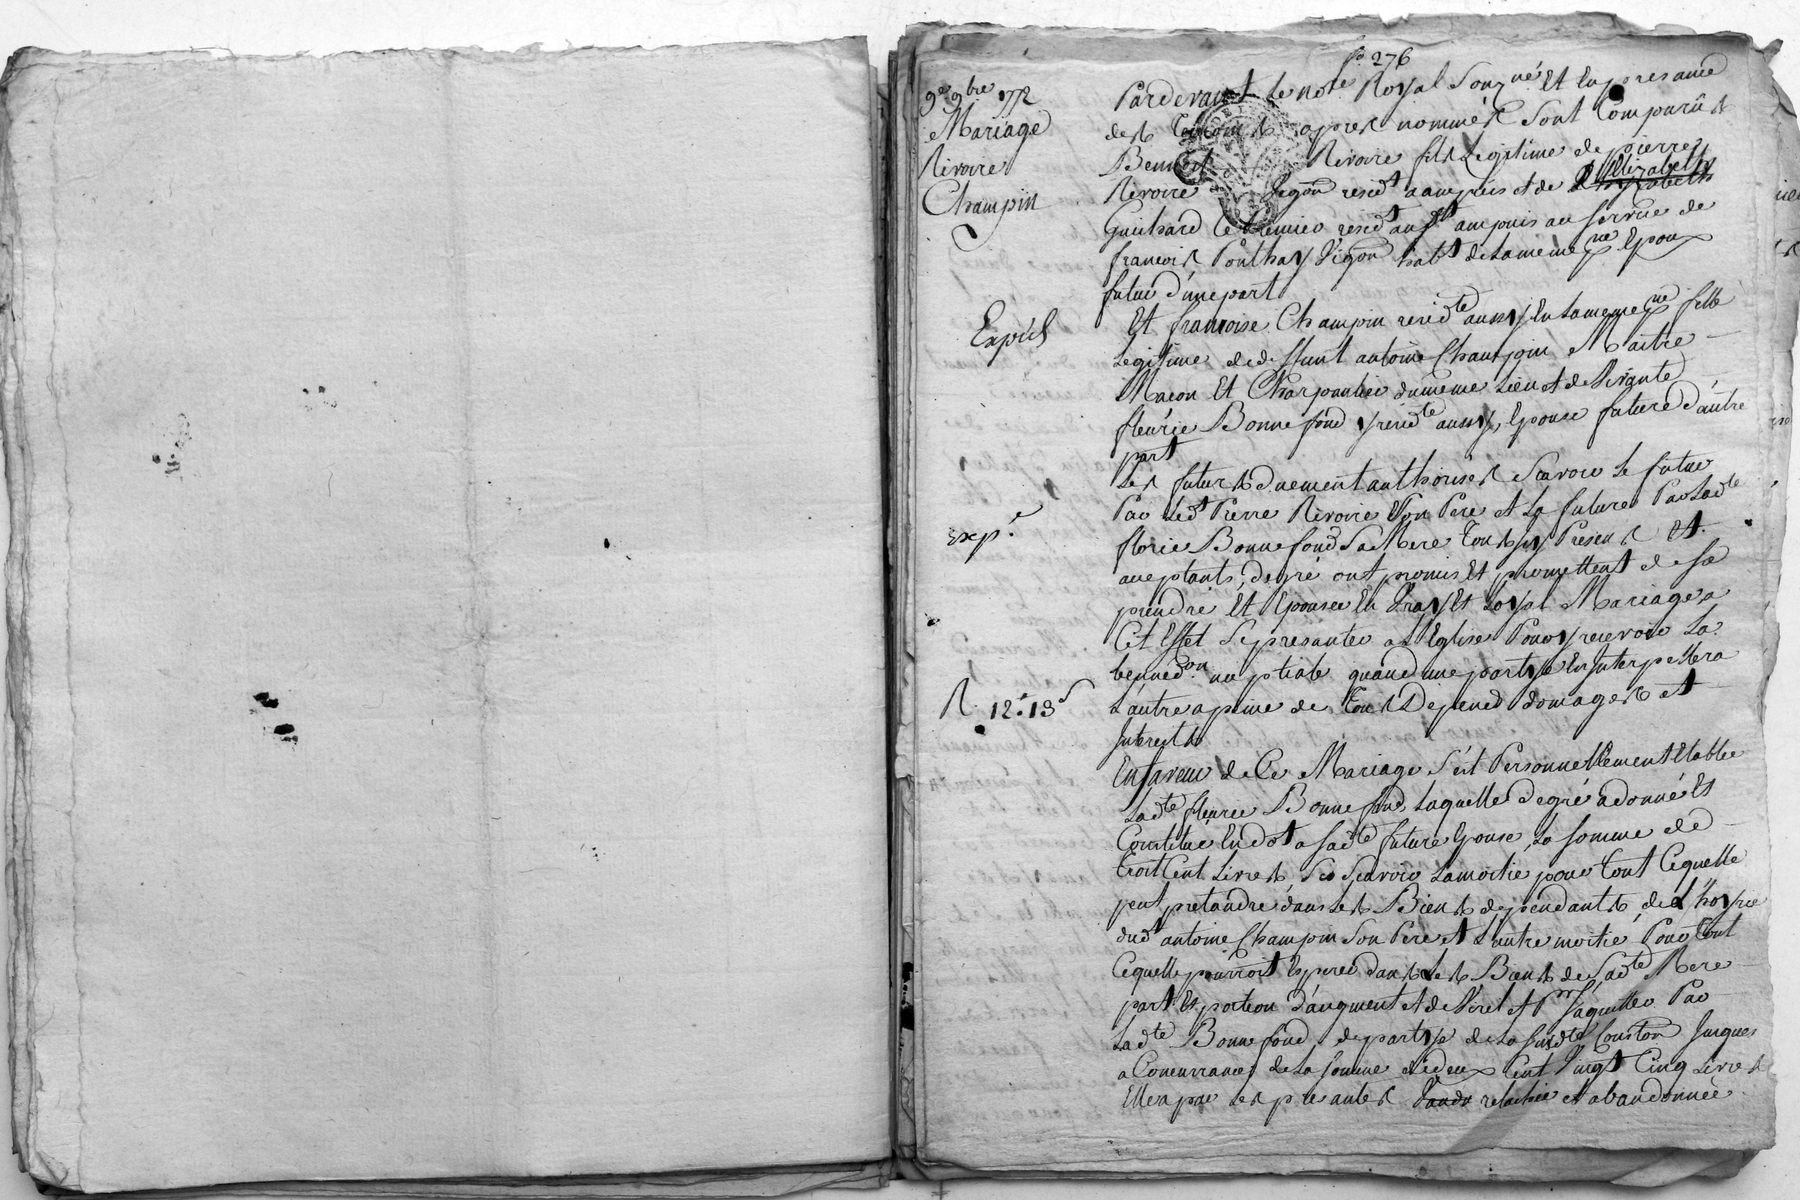 fo 276
9e 9bre 1772
Mariage
Rivoire
Champin
Expié
Expé
R. 12s 13d
Pardevant le note Royal Souzné Et En presance
des temoins apres nommés Sont Comparûs
Benoit Rivoire fils Legitime de pierre
Rivoire Vigon resedt a ampuis et de Elizabeth
Guichard le premier residt audt ampuis au service de
francois Ponthay Vigon habt de la meme psse Epoux
futur d'une part
Et francoise Champin residte aussy En la meme psse fille
Legitime de deffunt antoine Champin Maitre
Macon Et Charpantier du meme Lieu et de Vivante
fleurie Bonnefond y residte aussy, Epouse future d'autre
part
Les futurs duement authorisés Scavoir le futur
Par Ledt Pierre Rivoire Son Pere et La future Par Ladte
florie Bonnefond Sa Mere tous icy Presens Et
aceptants, de gré ont promis Et promettent de se
prendre Et Epouser En Vray Et Loyal Mariage a
Cet Effet Se presanter a L'Eglise Pour y recevoir La
benedon nuptiale quand une partye En Interpellera
L'autre a peine de tous Depens domages et
Interests
En faveur de Ce Mariage S'est Personnellement Etablie
Ladte fleurie Bonnefond, Laquelle de gré a donné Et
Constitué En dot a Sadte future Epouse, La somme de
trois Cent Livres, Scavoir La moitie pour tout Cequelle
peut pretandre dans les Biens dependants de L'hoyrie
dudt antoine Champin Son Pere et L'autre moitie Pour tout
Cequelle pourroit Esperer dans Les Biens de Sadte Mere
part Et portion d'augment et de Viret et Pr Saquitter Par
Ladte Bonnefond de partye de La Susdte Conston Jusques
a Concurrance de La somme de deux Cent Vingt Cinq Livres
Elle a par Les presantes relachée et abandonnée